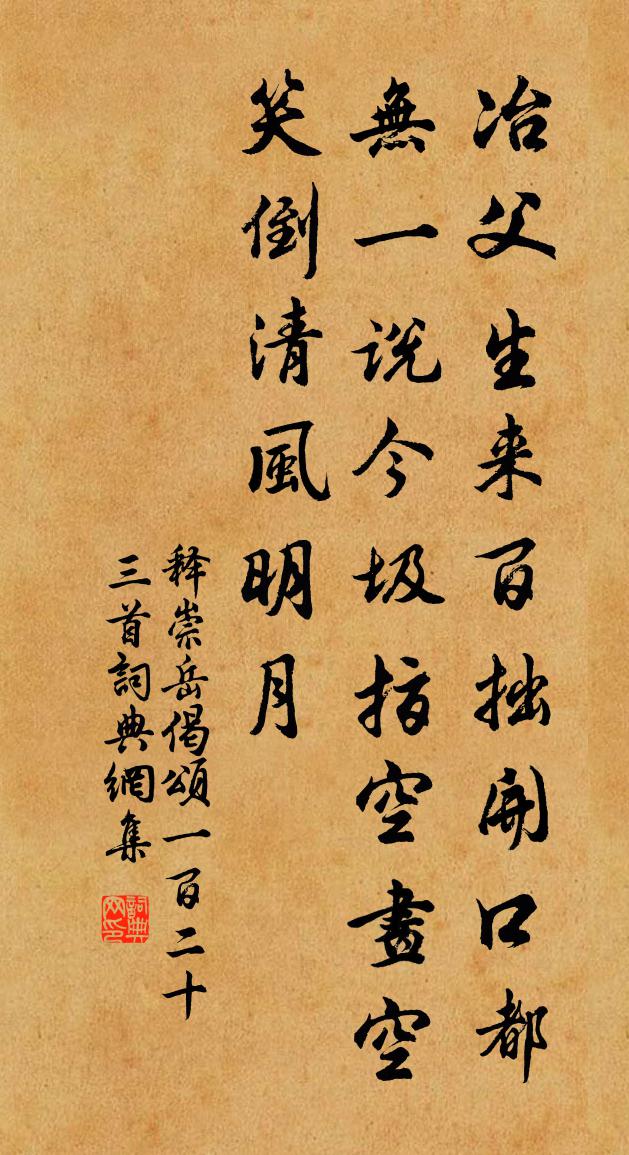 冶父生来百拙開口都
無一説今圾指空畫空
笑倒清風明月
释崇岳偈頌一百二十
三首詞典網集
詞典网印